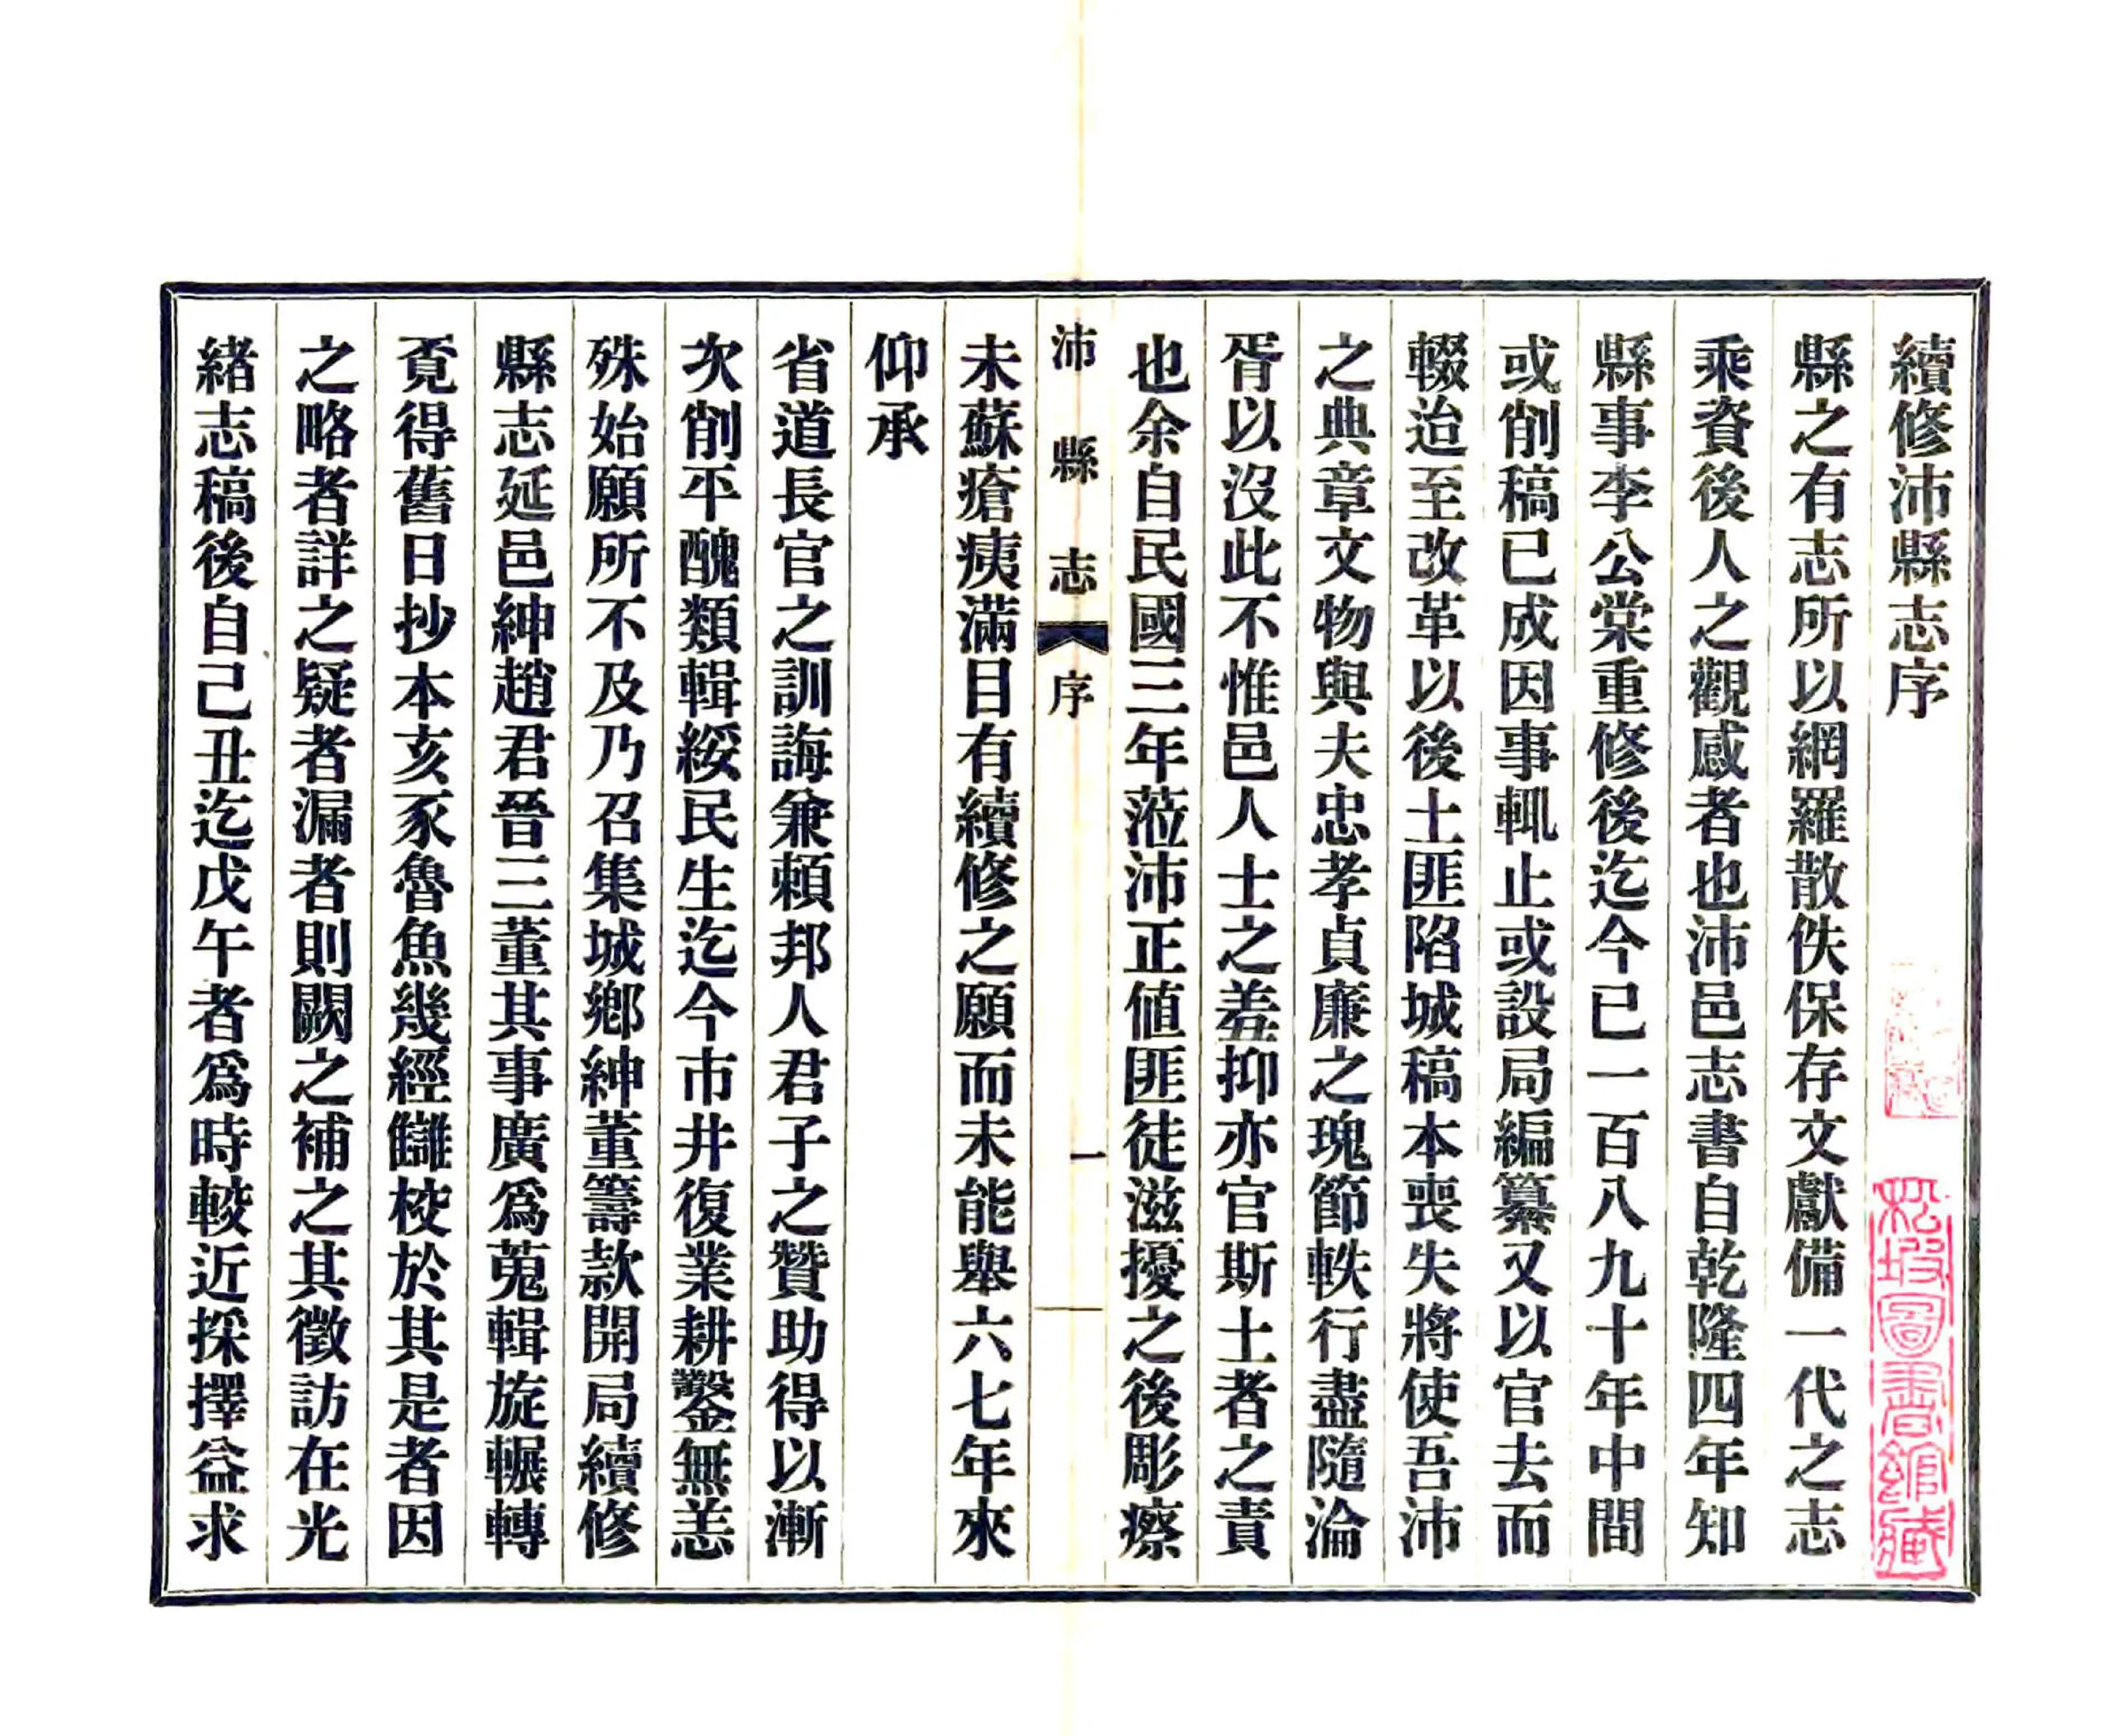 續修沛縣志序
縣之有志所以網羅散佚保存文獻備一代之志
乘資後人之觀感者也沛邑志書自乾隆四年知
縣事李公棠重修後迄今已一百八九十年中間
或削稿已成因事輒止或設局編纂又以官去而
輟迨至改革以後土匪陷城稿本喪失將使吾沛
之典章文物與夫忠孝貞廉之瑰節軼行盡隨淪
胥以沒此不惟邑人士之羞抑亦官斯土者之責
也余自民國三年蒞沛正値匪徒滋擾之後彫瘵
沛縣志 序 一
未蘇瘡痍滿目有續修之願而未能舉六七年來
仰承
省道長官之訓誨兼賴邦人君子之贊助得以漸
次削平醜類輯綏民生迄今市井復業耕鑿無恙
殊始願所不及乃召集城鄉紳董籌款開局續修
縣志延邑紳趙君晉三董其事廣爲蒐輯旋輾轉
覓得舊日抄本亥豕魯魚幾經讎校於其是者因
之略者詳之疑者漏者則闕之補之其徵訪在光
緒志稿後自己丑迄戊午者爲時較近採擇益求
松坡圖書館藏